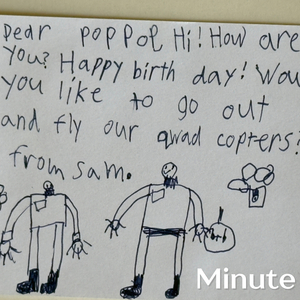 Dear poppop Hi! How are
you? Happy birth day! Wou
you like to go out
and fly our qwad copters!
from sam.
Minute